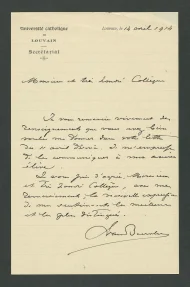 Université Catholique
DE
LOUVAIN
Secrétariat
Louvain, le 14 avril 1914
Monsieur et très honoré Collègue
Je vous remercie vivement des
renseignements que vous avez bien
voulu me donner dans votre lettre
du avril. Je m'empresse
de les communiquer à mon ancien
élève.
Je vous prie d'agréer, Monsieur
et très honoré Collègue, avec mes
remerciements, la nouvelle expression
de mes sentiments les meilleurs
et les plus distingués.